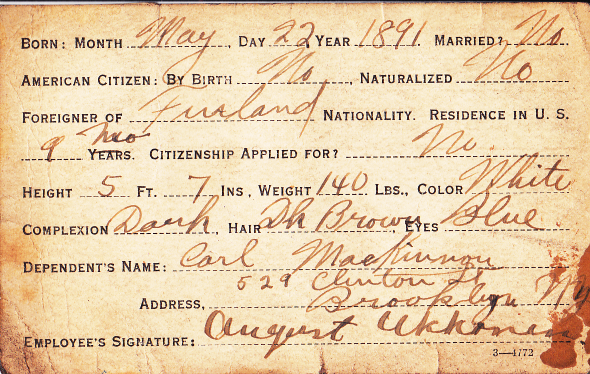 BORN: MONTH May, DAY 22 YEAR 1891 MARRIED? No
AMERICAN CITIZEN: BY BIRTH No, NATURALIZED No
FOREIGNER OF Finland NATIONALITY. RESIDENCE IN U. S.
9 mo YEARS. CITIZENSHIP APPLIED FOR? No.
HEIGHT 5 FT. 7 INS, WEIGHT 140 LBS., COLOR White
COMPLEXION Dark, HAIR Dk Brown, EYES Blue.
DEPENDENT'S NAME: Carl MacKinnon
529 Clinton St
ADDRESS, Brooklyn Ny
EMPLOYEE'S SIGNATURE: August
3—4772